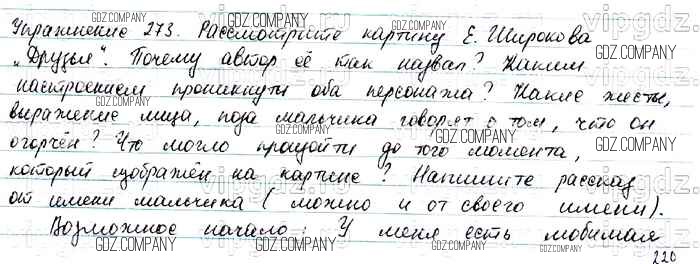 Упражнение 273. Рассмотрите картину Е. Широкова
„Друзья". Почему автор её так назвал? Каким
настроением проникнуты оба персонажа? Какие жесты,
выражение лица, поза мальчика говорят о том, что он
огорчён? Что могло произойти до того момента,
который изображён на картине? Напишите рассказ
от имени мальчика (можно и от своего имени).
Возможное начало: У меня есть любимая
220
GDZ.COMPANY
vipgdz.ru